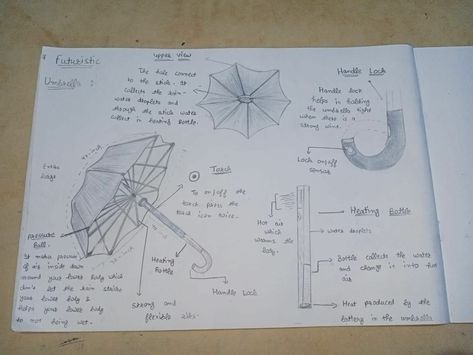 Futuristic
Umbrella :
upper view
The hole connect
to the stick. It
collects the rain-
water droplets and
through the stick water
collect in heating Bottle.
Handle Lock
Handle lock
helps in holding
the umbrella tight
when there is a
strong wind.
Lock on/off
sensor
Extra
large
Torch
To on/off the
torch press the
torch icon twice.
pressure
Ball.
It makes pressure
of air inside down
around your lower body which
don't let the rain strike
your lower body &
helps your lower body
to not being wet.
Heating
Bottle
Handle Lock
Strong and
flexible ribs.
Hot air
which
warms the
body.
Heating Bottle
water droplets
Bottle collects the water
and change it into hot
air
Heat produced by the
battery in the umbrella